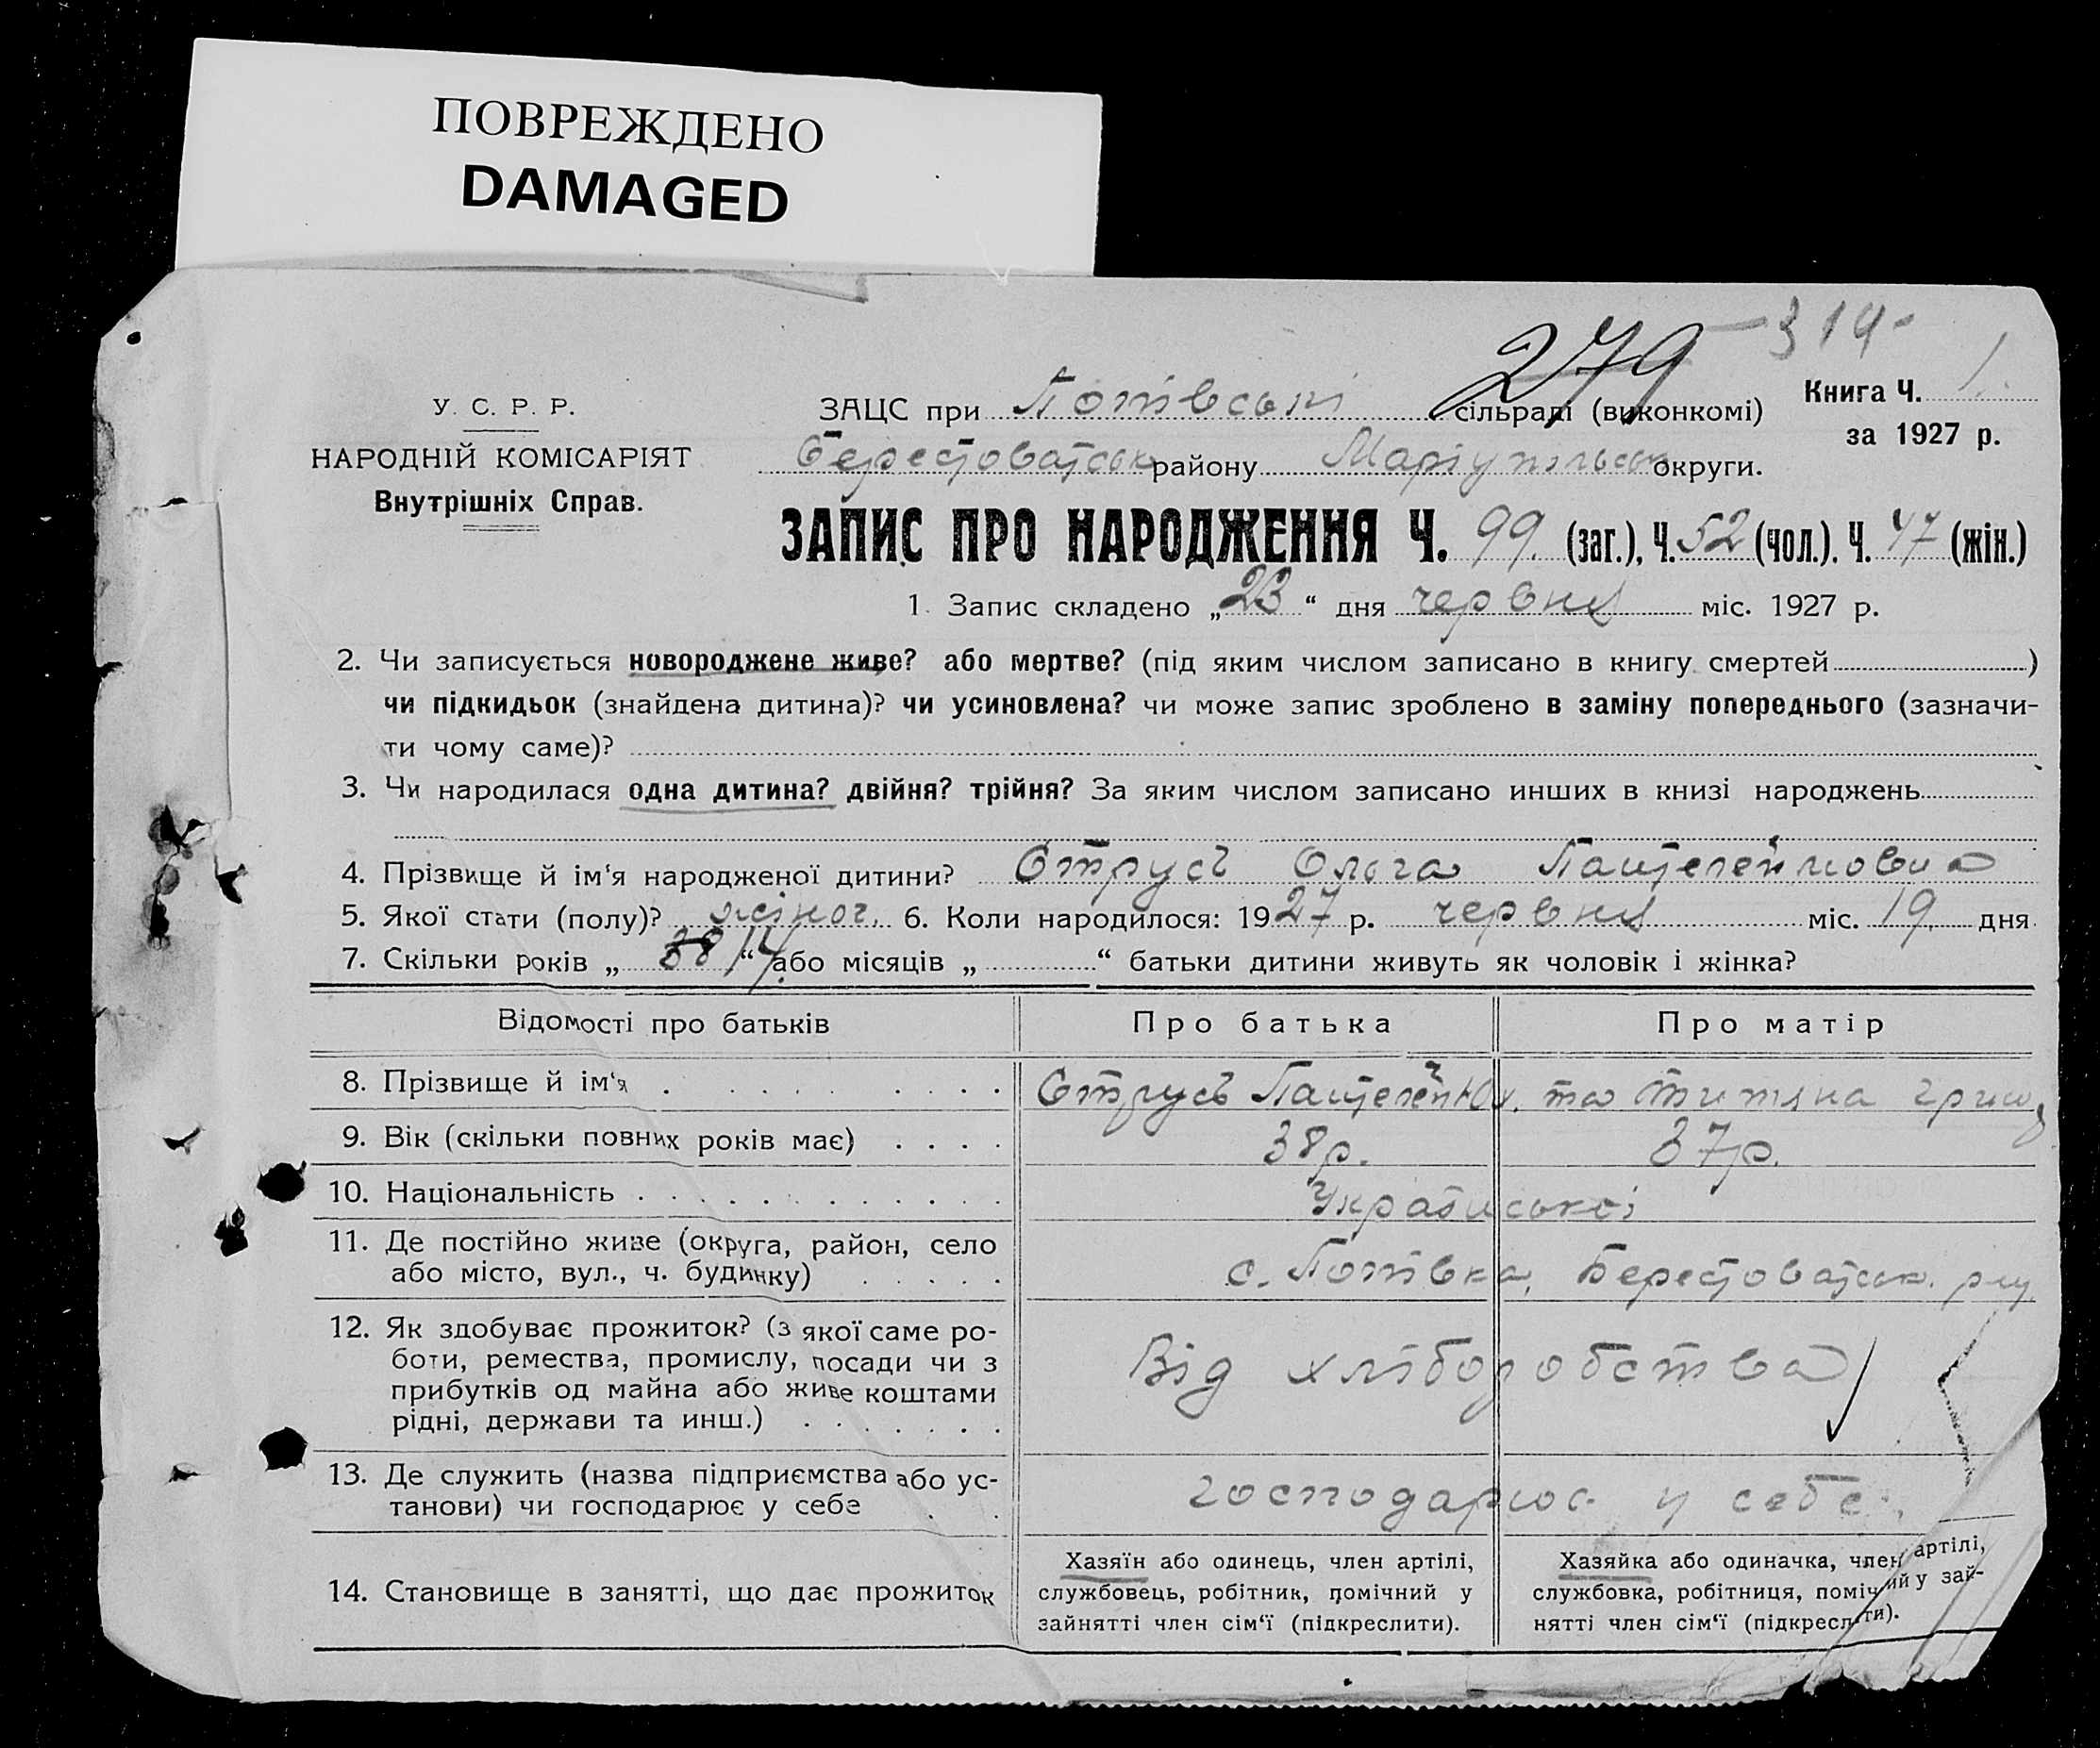 ПОВРЕЖДЕНО
DAMAGED
279 — 314 -
У. С. Р. Р.
НАРОДНІЙ КОМІСАРІЯТ
Внутрішніх Справ.
ЗАЦС при Потівські сільраді (виконкомі)
Берестоватськ району Маріупільськ округи.
Книга Ч. 1.
за 1927 р.
ЗАПИС ПРО НАРОДЖЕННЯ Ч. 99. (заг.), Ч. 52 (чол.). Ч. 47 (жін.)
1. Запис складено „ 23 “ дня червня міс. 1927 р.
2. Чи записується новороджене живе? або мертве? (під яким числом записано в книгу смертей )
чи підкидьок (знайдена дитина)? чи усиновлена? чи може запис зроблено в заміну попереднього (зазначи-
ти чому саме)?
3. Чи народилася одна дитина? двійня? трійня? За яким числом записано инших в книзі народжень
4. Прізвище й ім‘я народженої дитини? Струсь Ольга
5. Якої стати (полу)? жіноч. 6. Коли народилося: 1927 р. червня міс. 19. дня
7. Скільки років „ “ або місяців „ “ батьки дитини живуть як чоловік і жінка?
Відомості про батьків
Про батька
Про матір
8. Прізвище й ім‘я . . . . . . . . .
Струсь
та
9. Вік (скільки повних років має) . . . .
38р.
37р.
10. Національність . . . . . . . . . . . .
Української
11. Де постійно живе (округа, район, село
або місто, вул., ч. будинку) . . . . .
с. Потівка, Берестоватськ. р-ну
12. Як здобуває прожиток? (з якої саме ро-
боти, ремества, промислу, посади чи з
прибутків од майна або живе коштами
рідні, держави та инш.) . . . . . .
Від хліборобства
13. Де служить (назва підприємства або ус-
танови) чи господарює у себе . .
господарює у себе.
14. Становище в занятті, що дає прожиток
Хазяїн або одинець, член артілі,
службовець, робітник, помічний у
зайнятті член сім‘ї (підкреслити).
Хазяйка або одиначка, член артілі,
службовка, робітниця, помічний у зай-
нятті член сім‘ї (підкреслити).